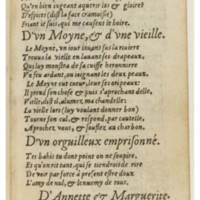 Qu'en bien iugeant aquerir los & gloire?
D'espicer (dist la face cramoisie)
Friant ie suis, qui me causent le boire.
D'vn Moyne, & d'vne vieille.
Le Moyne, vn iour iouant sus la riuiere
Trouua la vieille en lauant ses drapeaux,
Qui luy monstra de sa cuisse heronniere
Vn feu ardant, ou ioignoient les deux peaux.
Le Moyne eut cueur, leue ses oripeaux:
Il prend son chose & puis s'aprochant delle,
Vieille, dist il, alumez, ma chandelle:
La vieille lors (luy voulant donner bon)
Tourne son cul, & respond, par cautelle,
Aprochez vous, & soufflez au charbon.
D'vn orguilleux emprisonné.
Tes habis tu dont point on ne soupire,
Et qu'en ont tant, qui se tiendroit de rire
De voir par force à present estre doux
L'amy de nul, & lennemy de tous.
D'Annette & Marguerite.